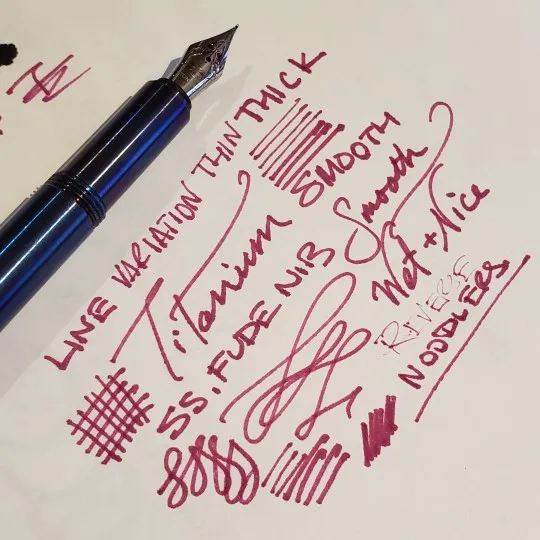 LINE VARIATION THIN THICK
Titanium SMOOTH
SS. FUDE NIB Smooth
Wet + Nice
REVERSE
NOODLERS